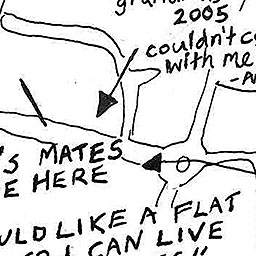 2005
couldn't
with me
'S MATES
E HERE
ULD LIKE A FLAT
I CAN LIVE